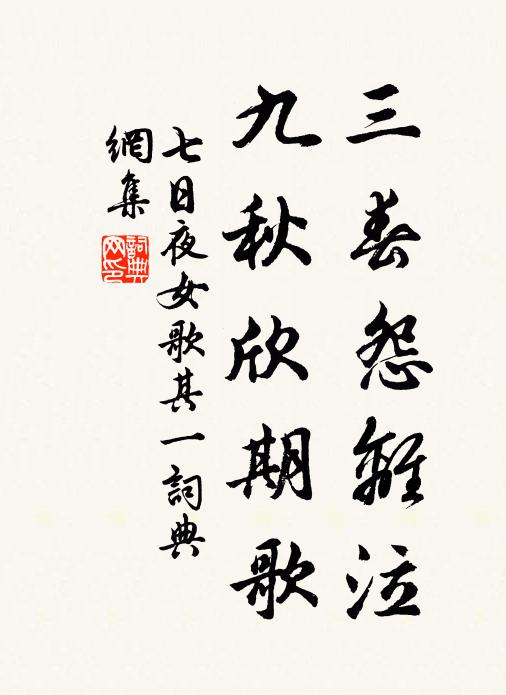 三春怨離泣
九秋欣期歌
七日夜女歌其一詞典
網集
詞典网印